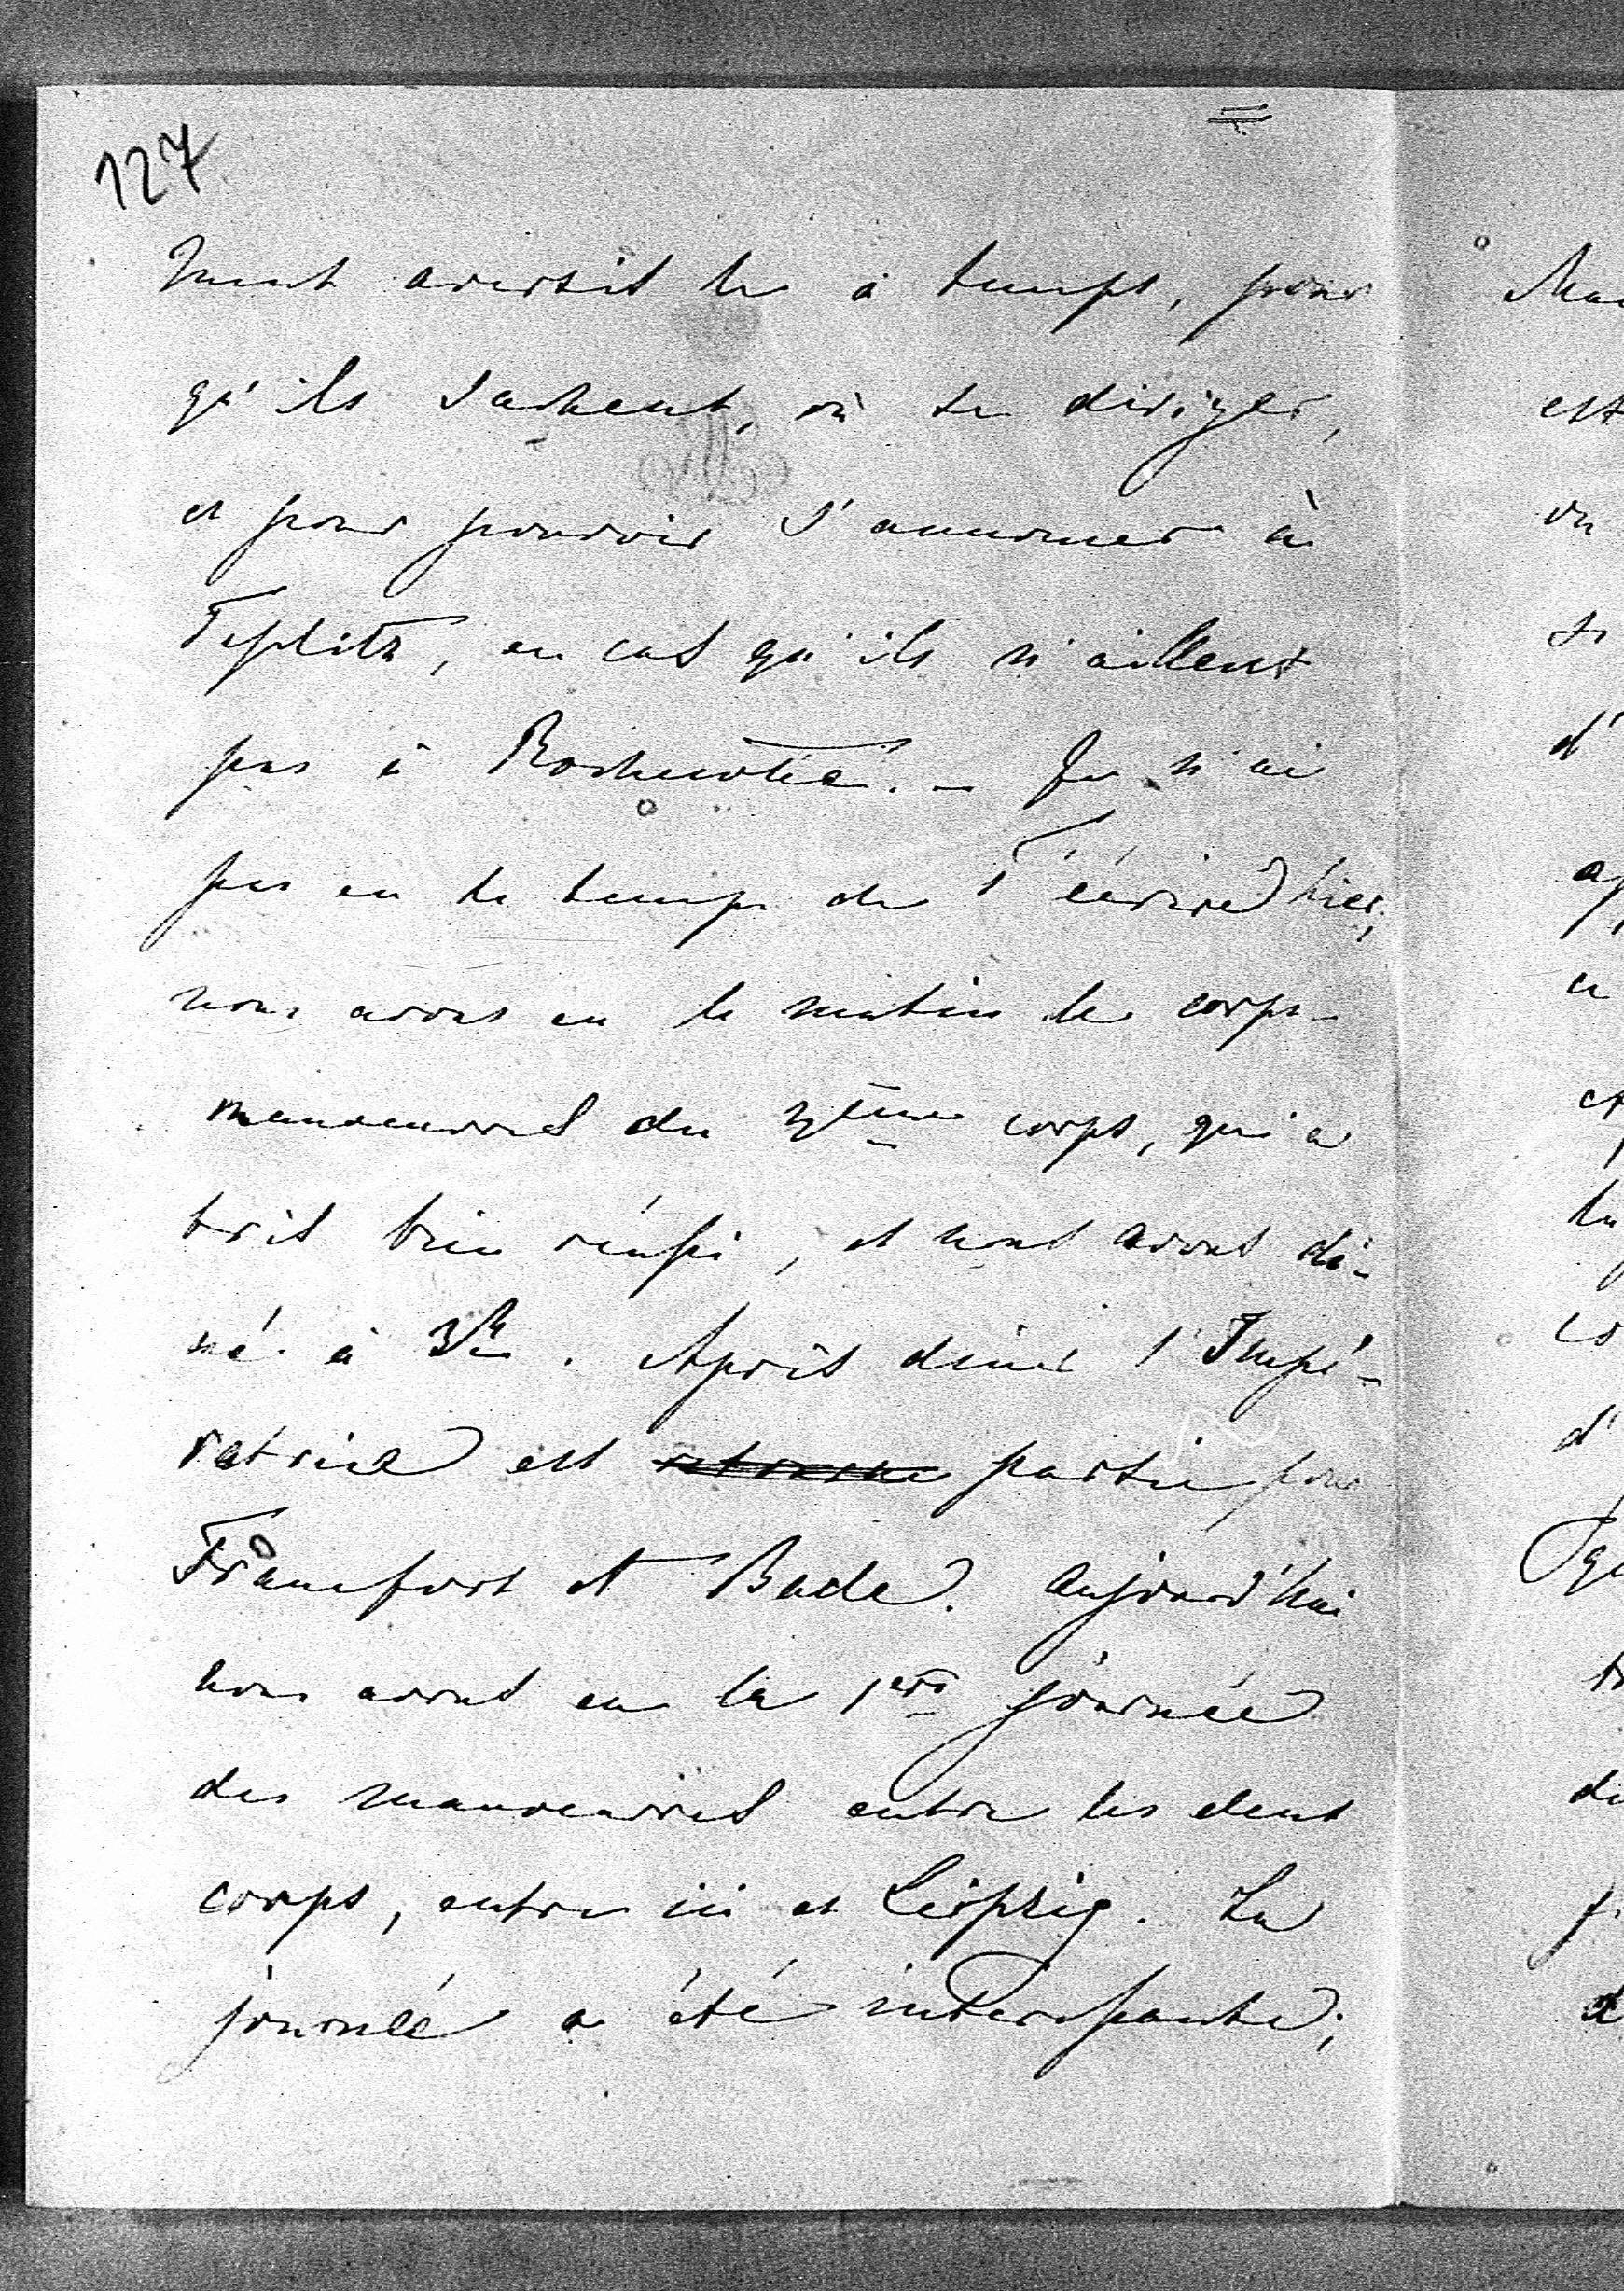 127
ment avertis les à temps, pour
qu'ils sachent, où se diriger,
et pour pouvoir s'annoncer à
Teplitz, en cas qu'ils n'aillent
pas à Rochecotte. - Je n'ai
pas eu le temps de T'écrire hier;
nous avons eu le matin le corps
manoeuvres du 3ème corps, qui a
très bien réussi, et nous avons dî-
né à 3h. Après diner l'Impé-
ratrice est partie pour
Francfort et Bade. Aujourd'hui
nous avons eu la 1ère journée
des manoeuvres entre les deux
corps, entre ici et Leipzig. La
journée a été interessante;